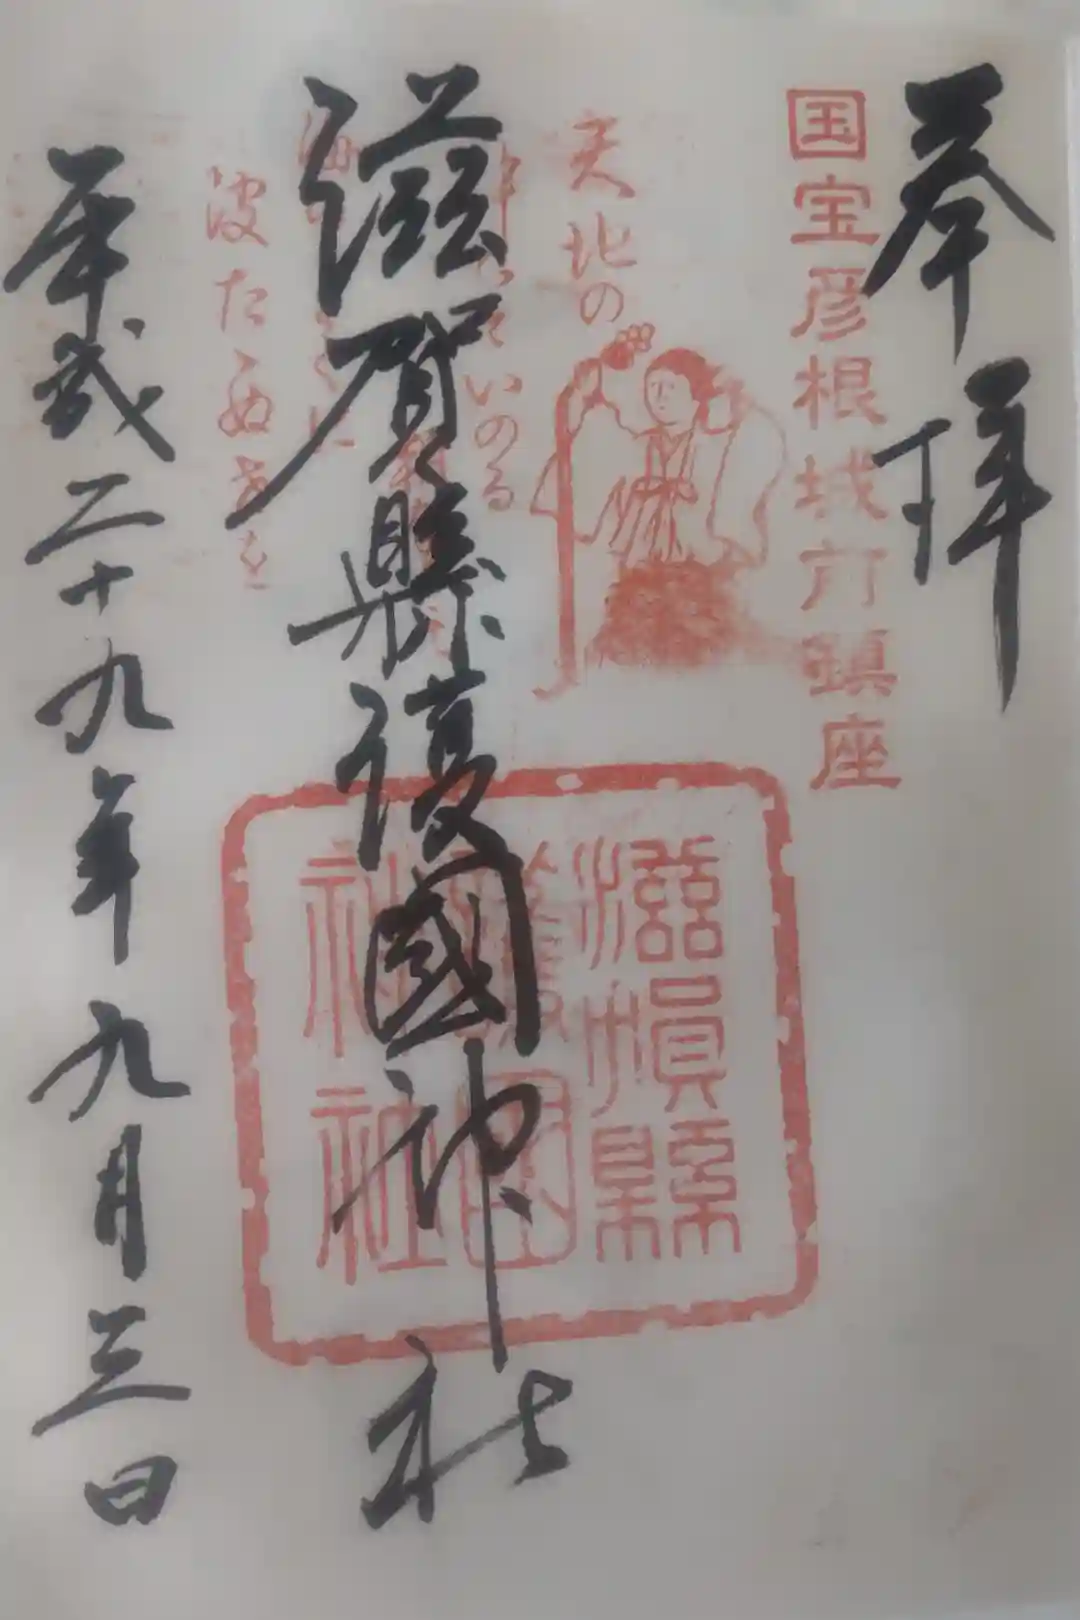 奉拝
国宝彦根城下鎮座
天地の
神にぞいのる
海のごとくに
波たゝぬ世を
滋賀縣護國神社
滋賀縣
護國
神社
平成二十九年九月三日